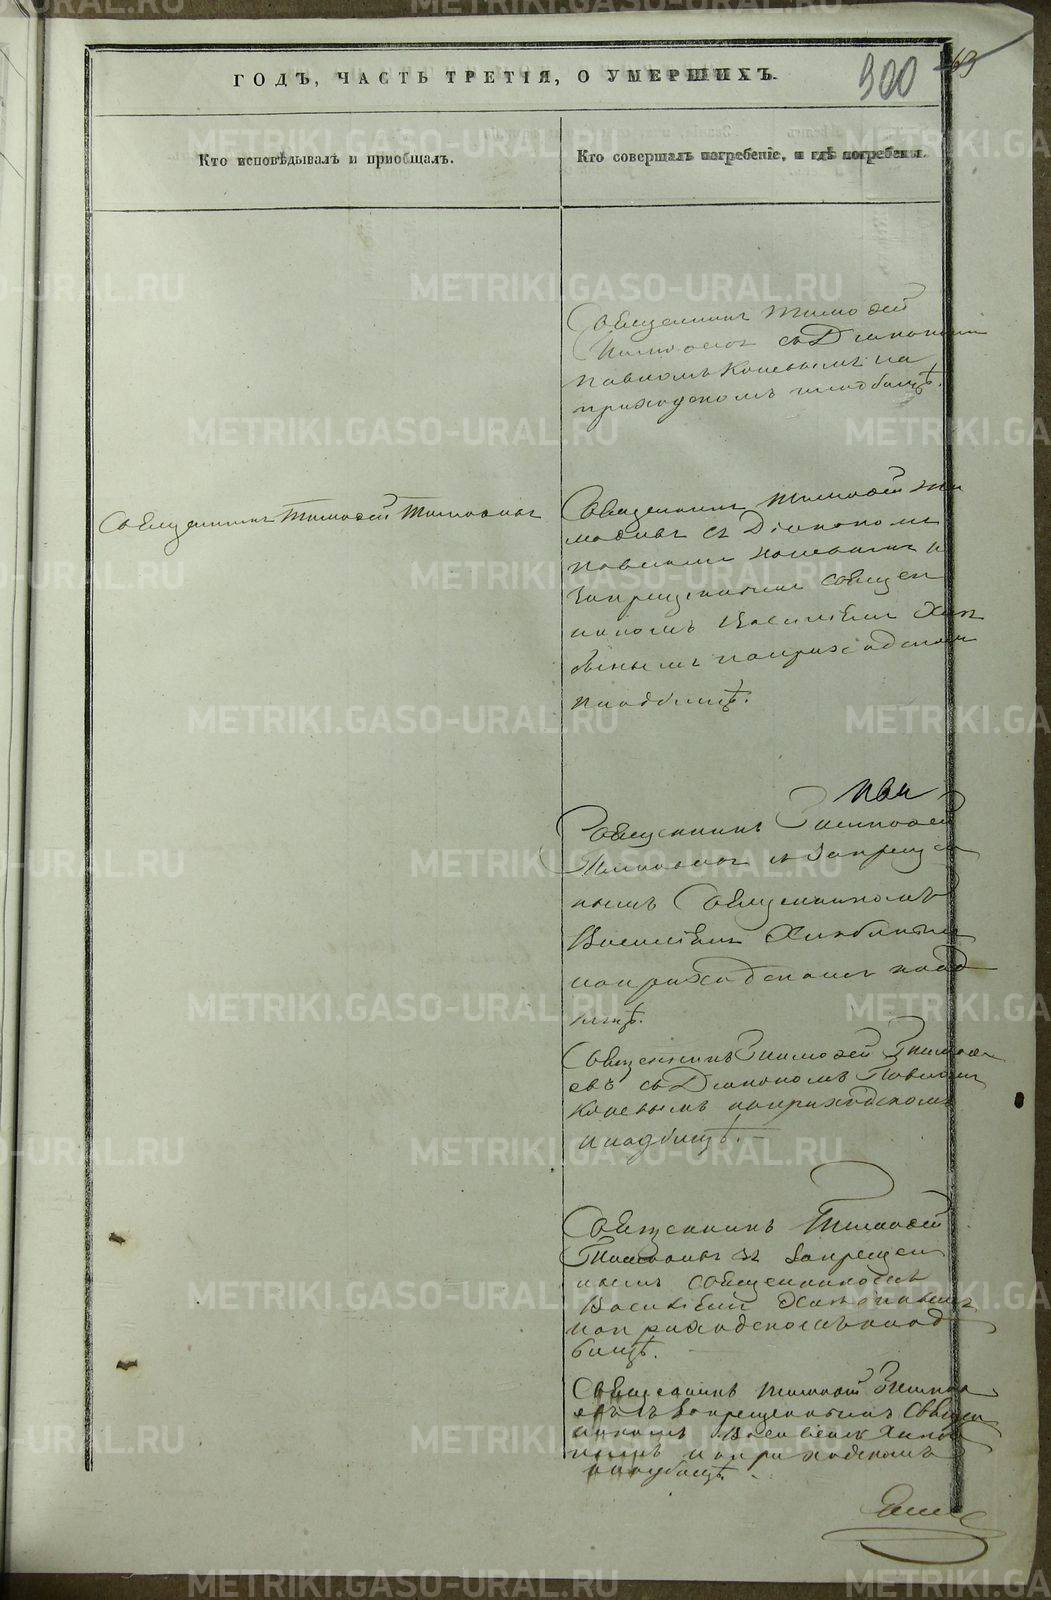 ГОДЪ, ЧАСТЬ ТРЕТІЯ, О УМЕРШИХЪ.
900
Кто исповѣдывалъ и пріобщалъ.
Кто совершалъ погребеніе, и гдѣ погребены.
Священникъ Тимоѳей
съ Діакономъ
Павломъ Коневымъ на
приходскомъ кладбищѣ.
Священникъ Тимоѳей Тимоѳеевъ
Священникъ Тимоѳей Ти
моѳеевъ съ Діакономъ
Павломъ Коневымъ и
запрещеннымъ Священ
никомъ Василіемъ
на приходскомъ
кладбищѣ.
Священникъ Тимоѳей
Тимоѳеевъ съ запрещен
нымъ Священникомъ
Василіемъ
на приходскомъ клад
бищѣ.
Священникъ Тимоѳей Тимоѳе
евъ съ Діакономъ Павломъ
Коневымъ на приходскомъ
кладбищѣ.
Священникъ Тимоѳей
Тимоѳеевъ съ запрещен
нымъ Священникомъ
Василіемъ
на приходскомъ клад
бищѣ.
Священникъ Тимоѳей Тимоѳе
евъ съ запрещеннымъ Священ
никомъ Василіемъ
на приходскомъ
кладбищѣ.
METRIKI.GASO-URAL.RU